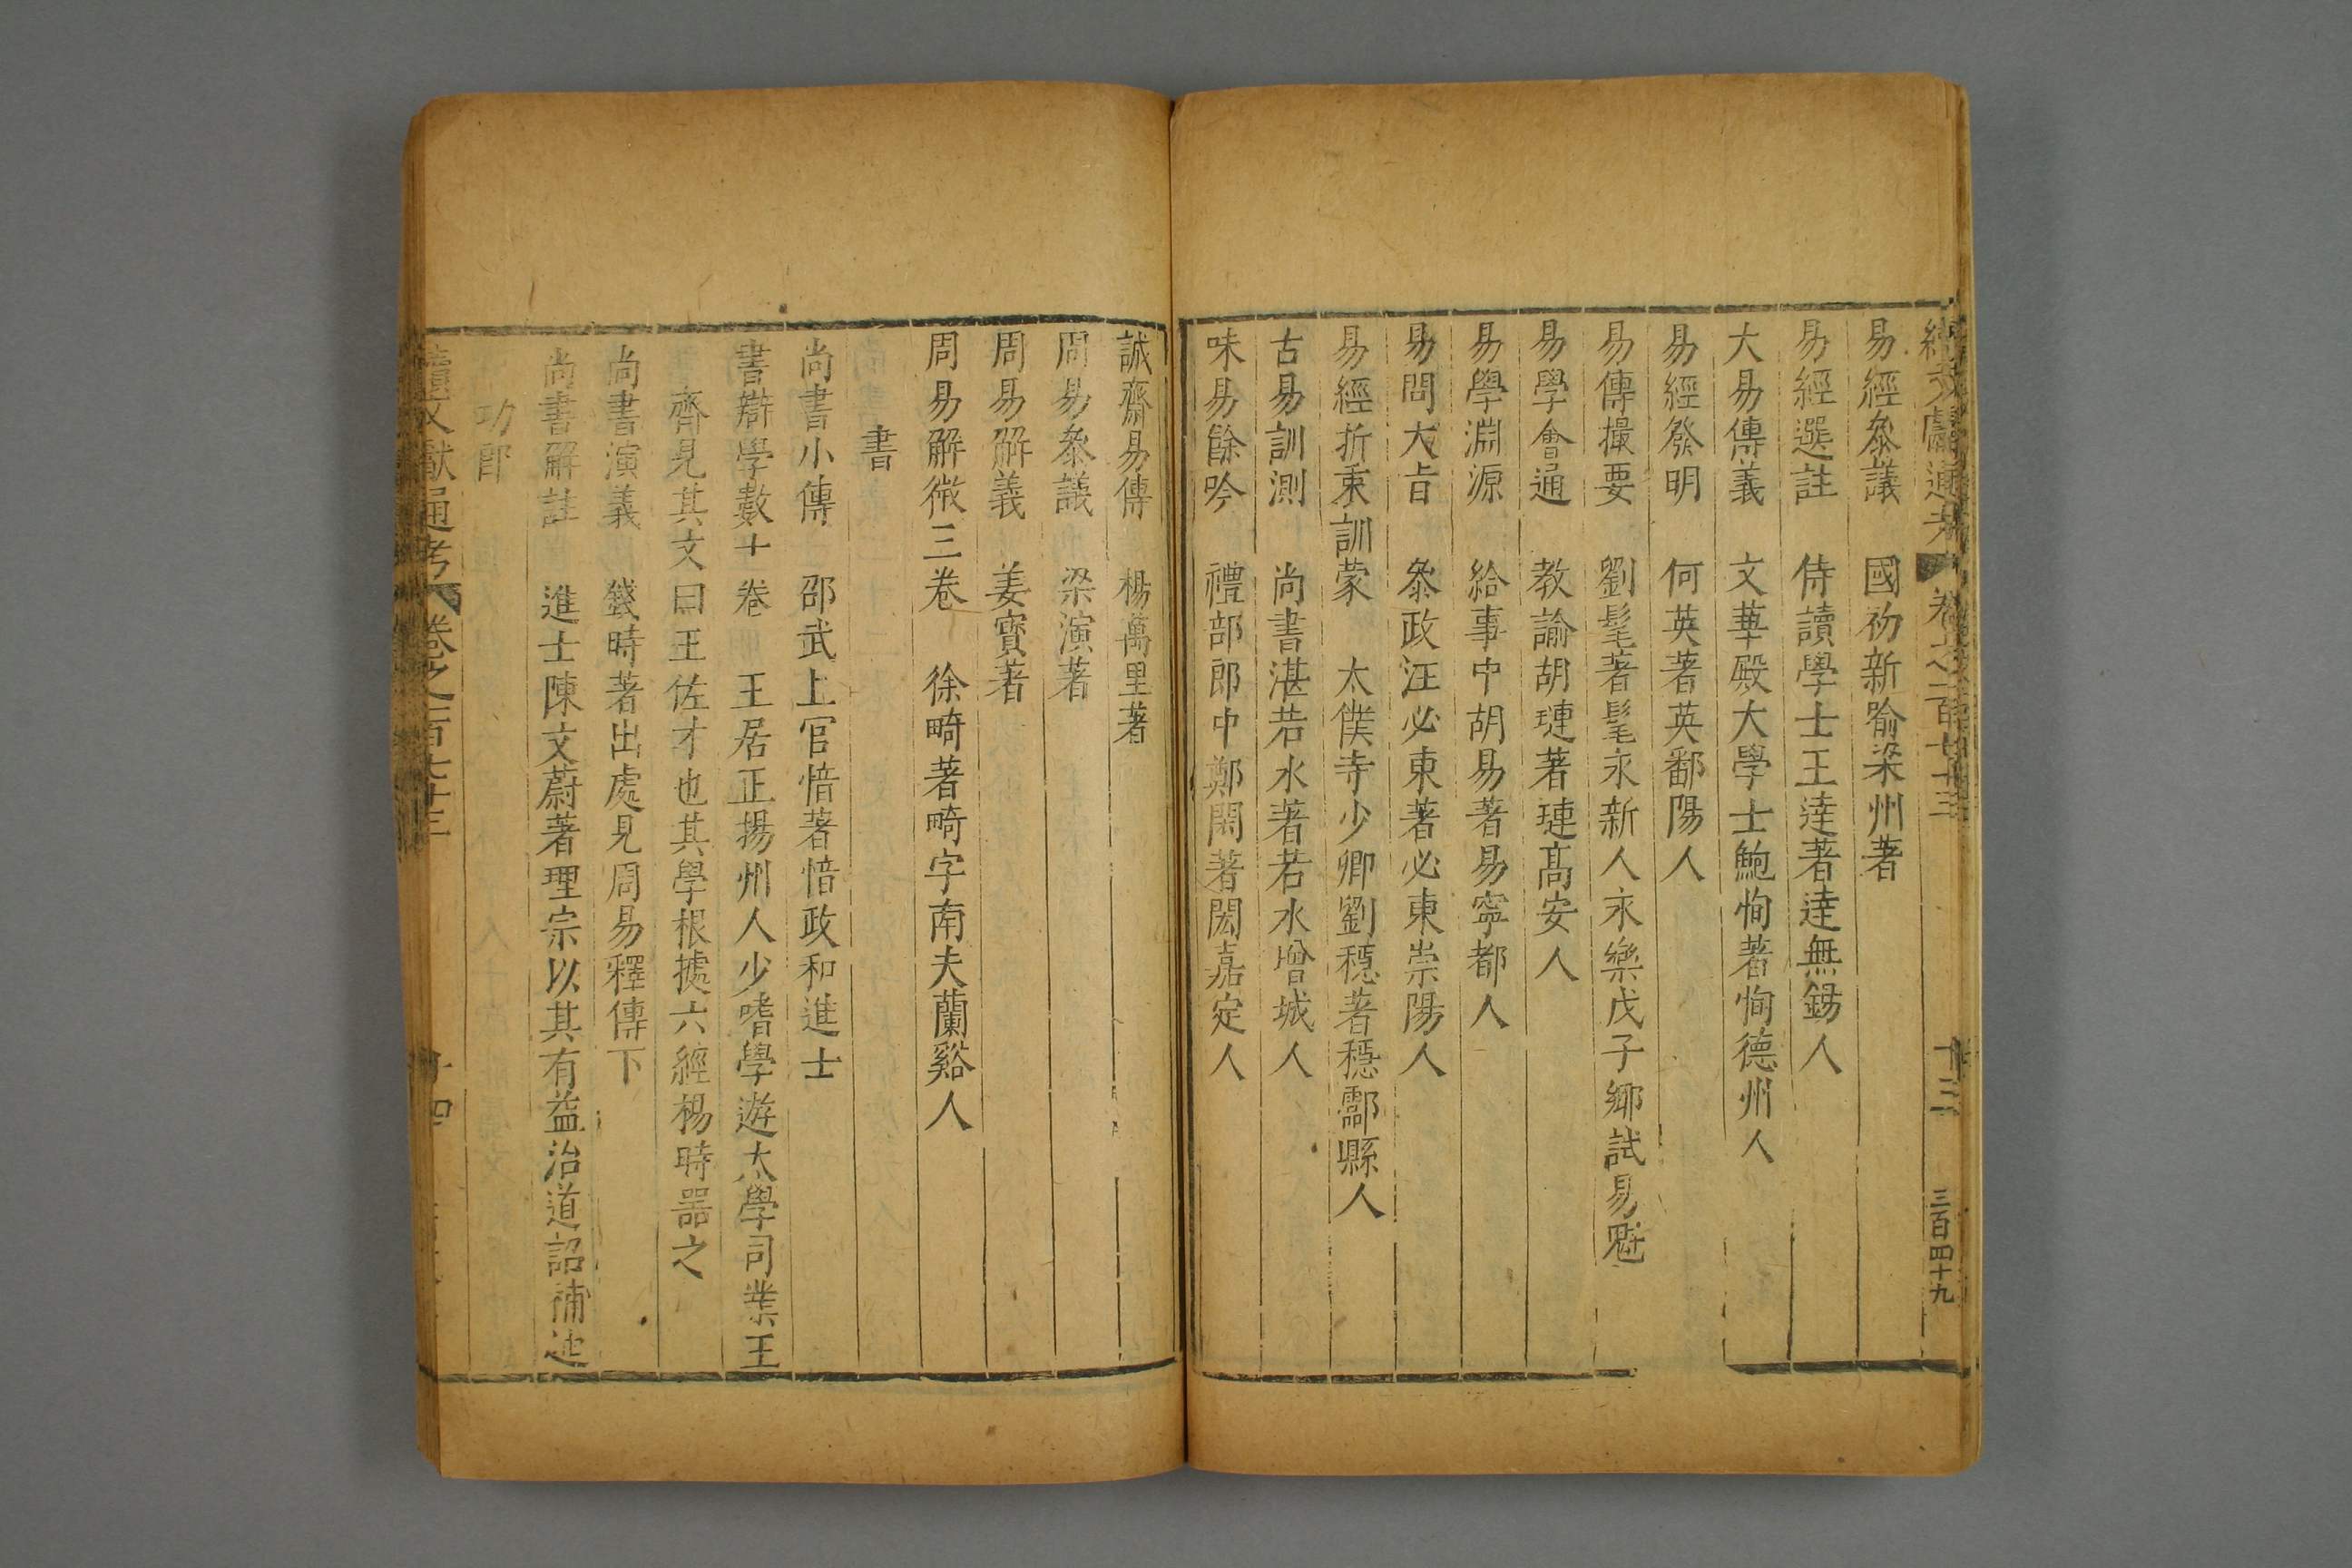 續文獻通考 卷之一百七十三 十三 三百四十九
易經叅議 國初新喻梁州著
易經選註 侍讀學士王達著達無錫人
大易傳義 文華殿大學士鮑恂著恂德州人
易經發明 何英著英鄱陽人
易傳撮要 劉髦著髦永新人永樂戊子鄉試易魁
易學會通 教諭胡璉著璉髙安人
易學淵源 給事中胡易著易寧都人
易問大旨 叅政汪必東著必東崇陽人
易經折衷訓蒙 太僕寺少卿劉穏著穏酃縣人
古易訓測 尚書湛若水著若水增城人
味易餘吟 禮部郎中鄭閎著閎嘉定人
誠齋易傳 楊萬里著
周易叅議 梁演著
周易解義 姜寳著
周易解微三卷 徐畸著畸字南夫蘭谿人
書
尚書小傳 邵武上官愔著愔政和進士
書辯學数十卷 王居正揚州人少嗜學遊太學司業王
齊見其文曰王佐才也其學根據六經楊時噐之
尚書演義 錢時著出處見周易釋傳下
尚書解註 進士陳文蔚著理宗以其有益治道詔補迪
功郎
續文獻通考 卷之一百七十三 十四